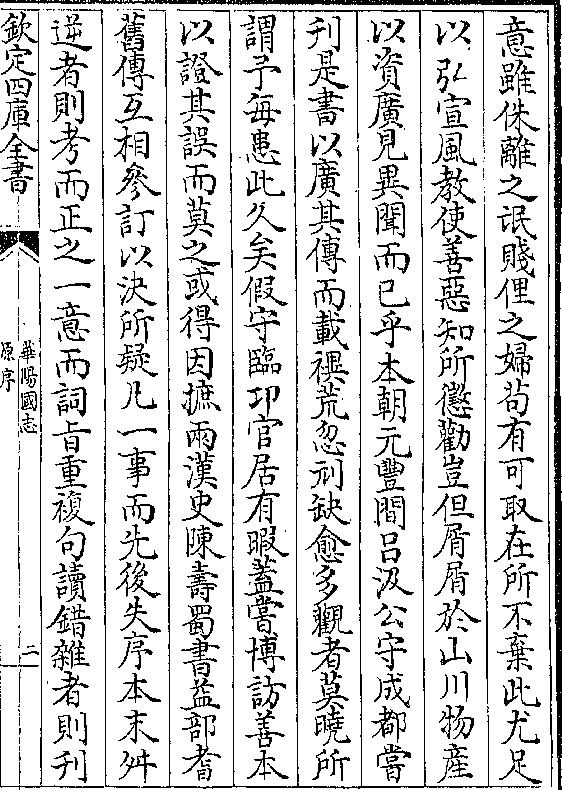 意雖侏離之氓賤俚之婦茍有可取在所不棄此尤足
以弘宣風教使善惡知所懲勸豈但屑屑於山川物産
以資廣見異聞而已乎本朝元豐間吕汲公守成都嘗
刋是書以廣其傳而載禩荒忽刓缺愈多觀者莫曉所
謂予每患此久矣假守臨卭官居有暇蓋嘗博訪善本
以證其誤而莫之或得因摭兩漢史陳壽蜀書益部耆
舊傳互相參訂以決所疑凡一事而先後失序本末舛
逆者則考而正之一意而詞旨重複句讀錯雜者則刋
欽定四庫全書
華陽國志
原序
二